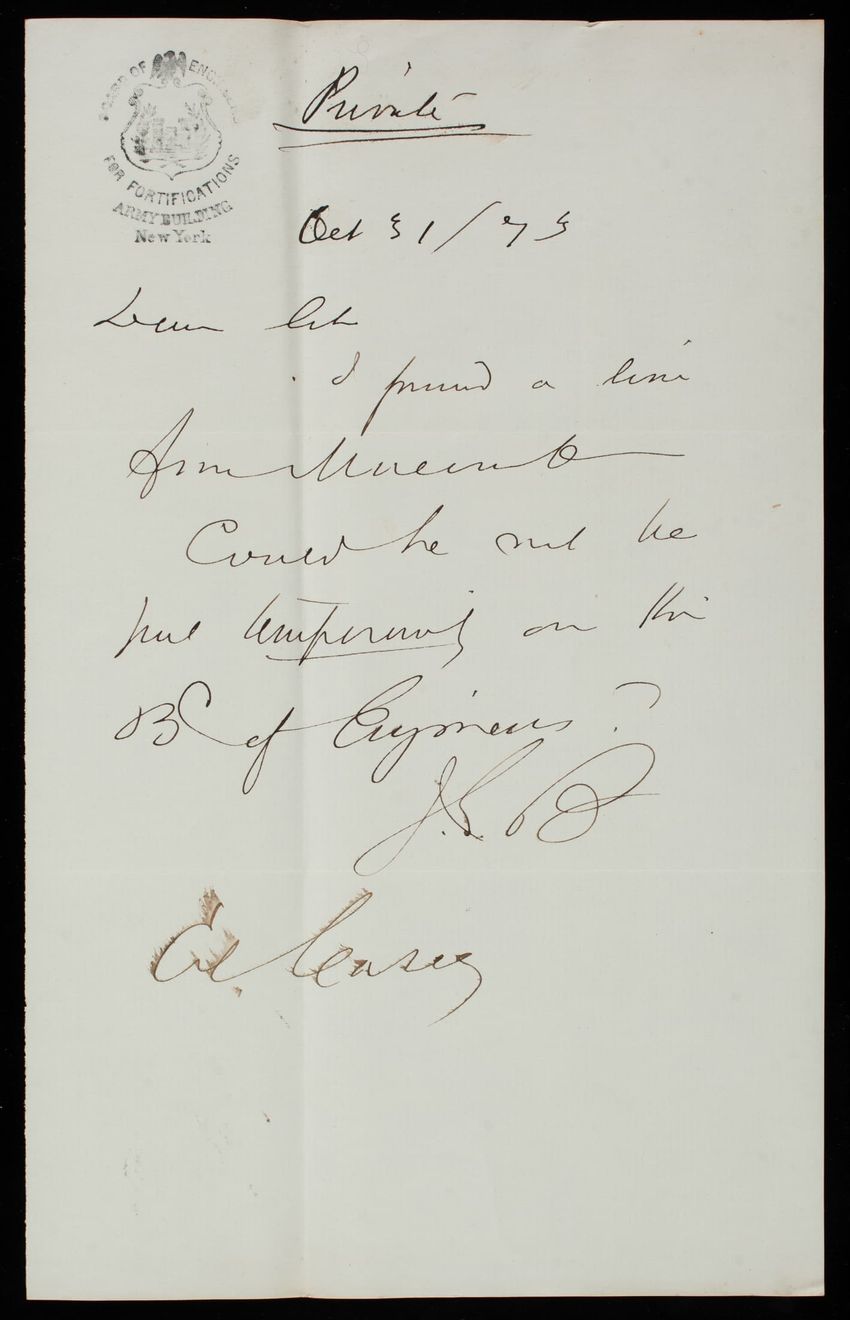 BOARD OF ENGINEERS
FOR FORTIFICATIONS
ARMY BUILDING
New York
Private
Oct 31/73
Dear Col
I found a line
from Macomb
Could he not be
put temporarily on the
Bd of Engineers?
J.G. B
Col. Casey